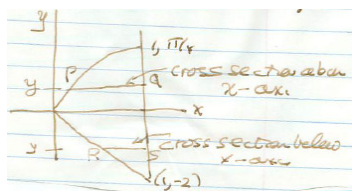 y
1, π/4
P
y
Q
cross section abov
x-axi
x
y
R
S
cross section below
x-axis
(1,-2)